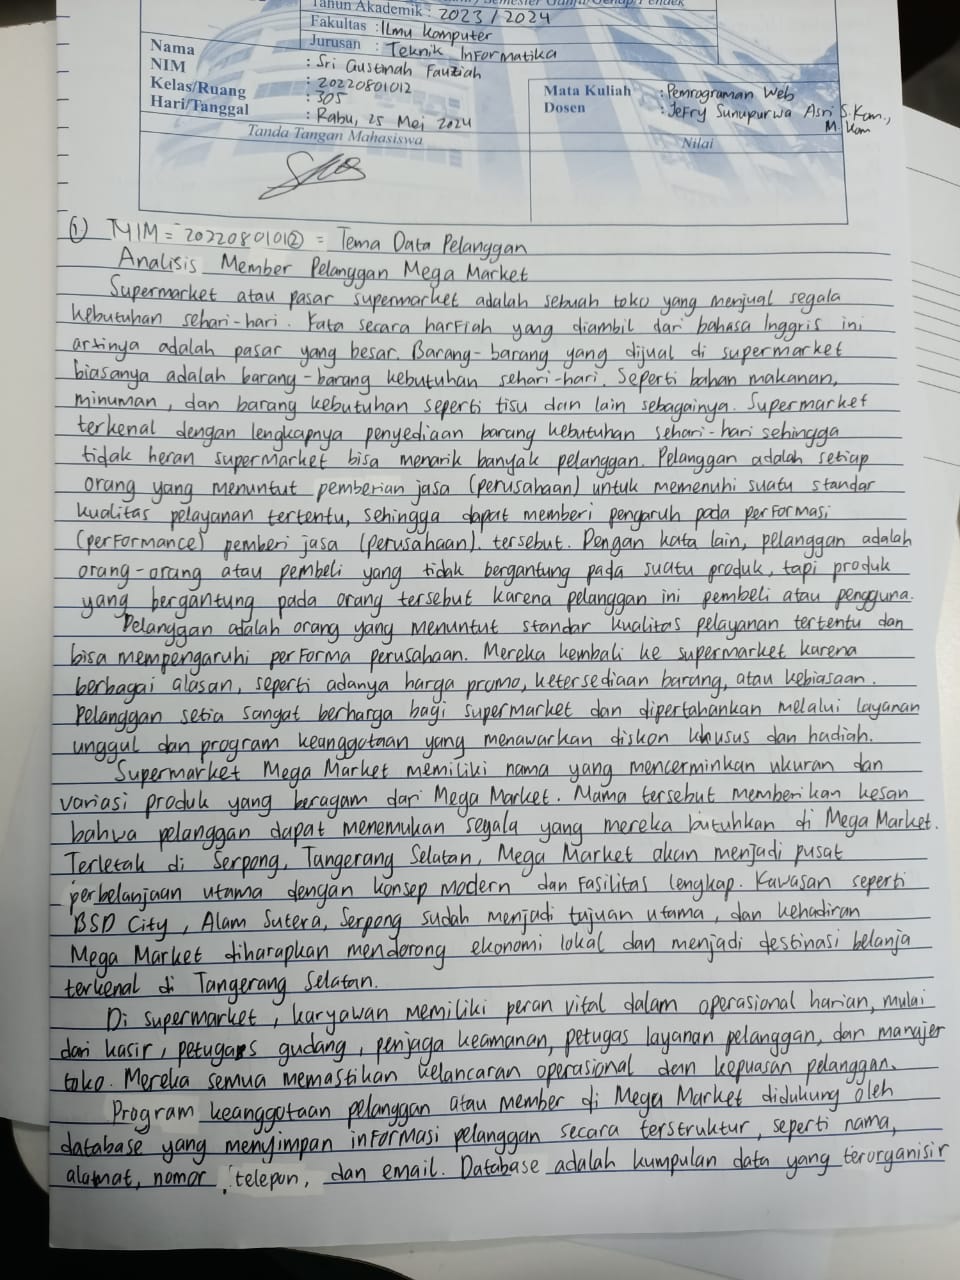 Tahun Akademik : 2023/2024
Fakultas : Ilmu Komputer
Jurusan : Teknik Informatika
Nama : Sri Gustinah Fauziah
NIM : 20220801012
Kelas/Ruang : 305
Hari/Tanggal : Rabu, 25 Mei 2024
Mata Kuliah : Pemrograman Web
Dosen : Jefry Sunupurwa Asri S.Kom.,
M.Kom
Tanda Tangan Mahasiswa
Nilai
1) NIM = 20220801012 = Tema Data Pelanggan
Analisis Member Pelanggan Mega Market
Supermarket atau pasar supermarket adalah sebuah toko yang menjual segala
kebutuhan sehari-hari. Kata secara harfiah yang diambil dari bahasa Inggris ini
artinya adalah pasar yang besar. Barang-barang yang dijual di supermarket
biasanya adalah barang-barang kebutuhan sehari-hari. Seperti bahan makanan,
minuman, dan barang kebutuhan seperti tisu dan lain sebagainya. Supermarket
terkenal dengan lengkapnya penyediaan barang kebutuhan sehari-hari sehingga
tidak heran supermarket bisa menarik banyak pelanggan. Pelanggan adalah setiap
orang yang menuntut pemberian jasa (perusahaan) untuk memenuhi suatu standar
kualitas pelayanan tertentu, sehingga dapat memberi pengaruh pada performasi
(performance) pemberi jasa (perusahaan). tersebut. Dengan kata lain, pelanggan adalah
orang-orang atau pembeli yang tidak bergantung pada suatu produk, tapi produk
yang bergantung pada orang tersebut karena pelanggan ini pembeli atau pengguna.
Pelanggan adalah orang yang menuntut standar kualitas pelayanan tertentu dan
bisa mempengaruhi performa perusahaan. Mereka kembali ke supermarket karena
berbagai alasan, seperti adanya harga promo, ketersediaan barang, atau kebiasaan.
Pelanggan setia sangat berharga bagi supermarket dan dipertahankan melalui layanan
unggul dan program keanggotaan yang menawarkan diskon khusus dan hadiah.
Supermarket Mega Market memiliki nama yang mencerminkan ukuran dan
variasi produk yang beragam dari Mega Market. Nama tersebut memberikan kesan
bahwa pelanggan dapat menemukan segala yang mereka butuhkan di Mega Market.
Terletak di Serpong, Tangerang Selatan, Mega Market akan menjadi pusat
perbelanjaan utama dengan konsep modern dan fasilitas lengkap. Kawasan seperti
BSD City, Alam Sutera, Serpong sudah menjadi tujuan utama, dan kehadiran
Mega Market diharapkan mendorong ekonomi lokal dan menjadi destinasi belanja
terkenal di Tangerang Selatan.
Di supermarket, karyawan memiliki peran vital dalam operasional harian, mulai
dari kasir, petugas gudang, penjaga keamanan, petugas layanan pelanggan, dan manajer
toko. Mereka semua memastikan kelancaran operasional dan kepuasan pelanggan.
Program keanggotaan pelanggan atau member di Mega Market didukung oleh
database yang menyimpan informasi pelanggan secara terstruktur, seperti nama,
alamat, nomor telepon, dan email. Database adalah kumpulan data yang terorganisir